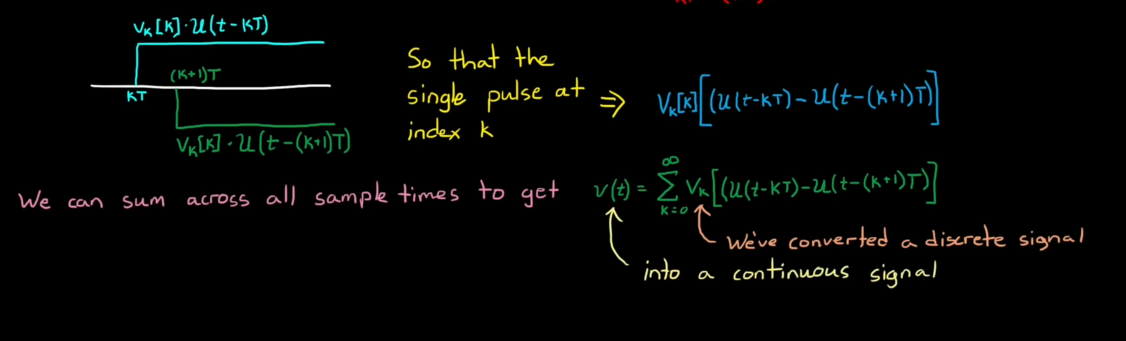 V_K[K]·u(t-KT)
(K+1)T
KT
V_K[K]·u(t-(K+1)T)
So that the
single pulse at
index k
⇒ V_K[K][(u(t-KT)-u(t-(K+1)T)]
We can sum across all sample times to get
v(t) = ∑_{K=0}^{∞} V_K[(u(t-KT)-u(t-(K+1)T)]
We've converted a discrete signal
into a continuous signal